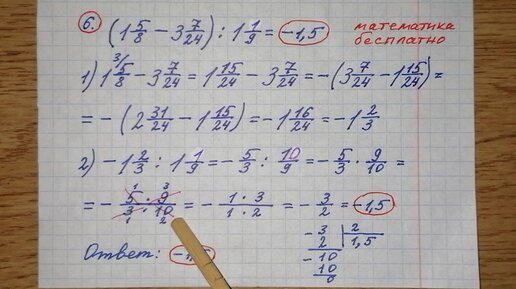 6. (1 5/8 - 3 7/24) : 1 1/9 = -1,5
математика
бесплатно
1) 1 5/8 - 3 7/24 = 1 15/24 - 3 7/24 = -(3 7/24 - 1 15/24) =
= -(2 31/24 - 1 15/24) = -1 16/24 = -1 2/3
2) -1 2/3 : 1 1/9 = -5/3 : 10/9 = -5/3 · 9/10 =
= - 5·9/3·10 = - 1·3/1·2 = - 3/2 = -1,5
- 3 | 2
2 | 1,5
- 10
10
0
Ответ: -1,5